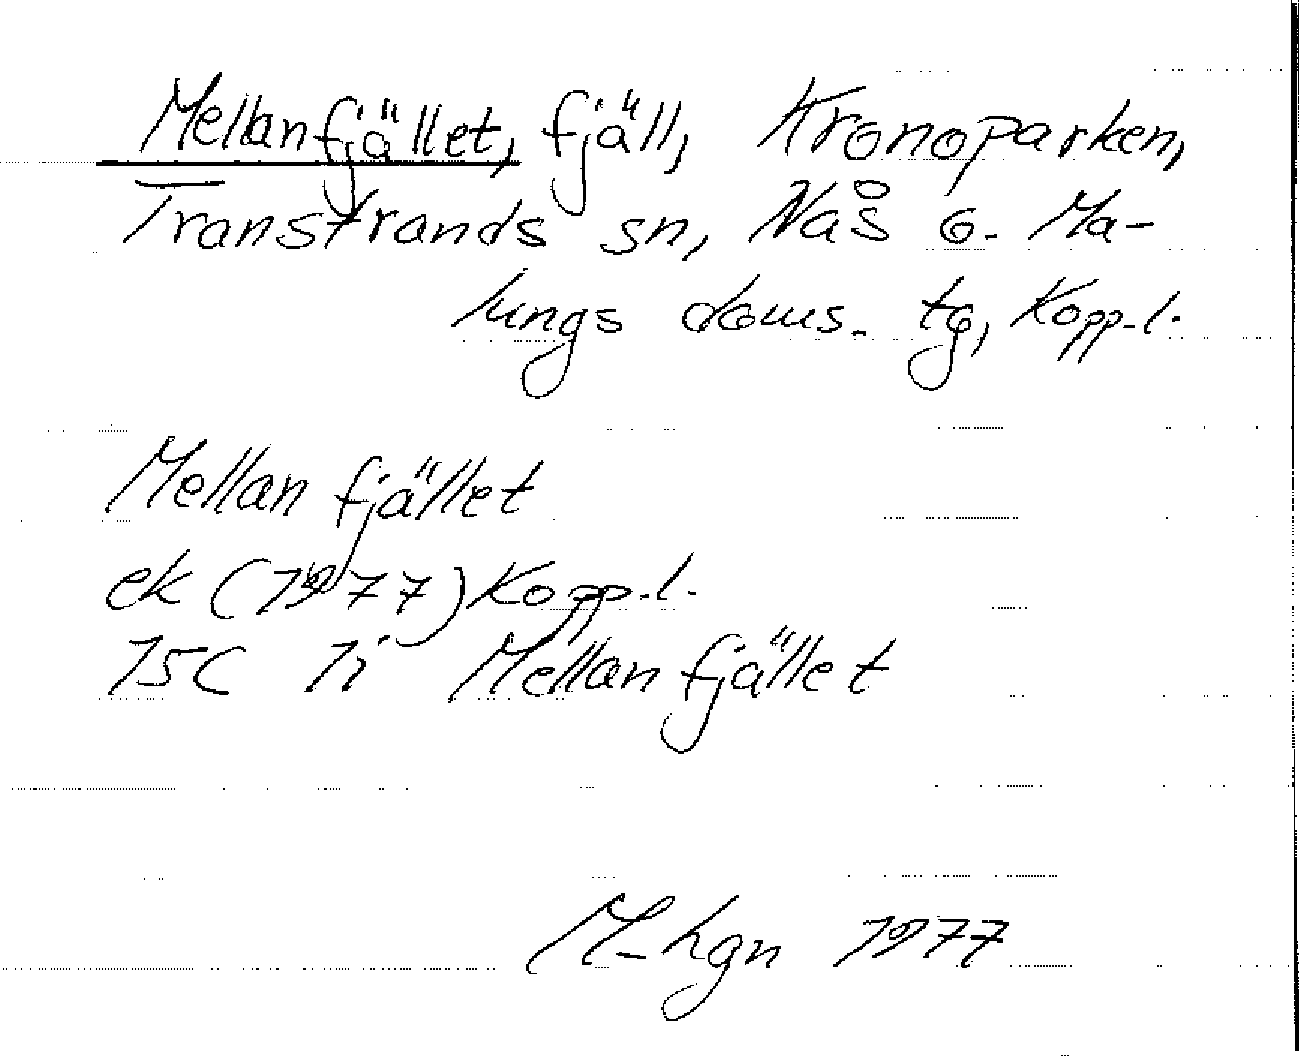 Mellanfjället, fjäll, Kronoparken,
Transtrands sn, Nås o. Ma-
lungs doms. tg, Kopp. l.
Mellanfjället
ek (1977) Kopp. l.
15C 1i Mellanfjället
M-hgn 1977